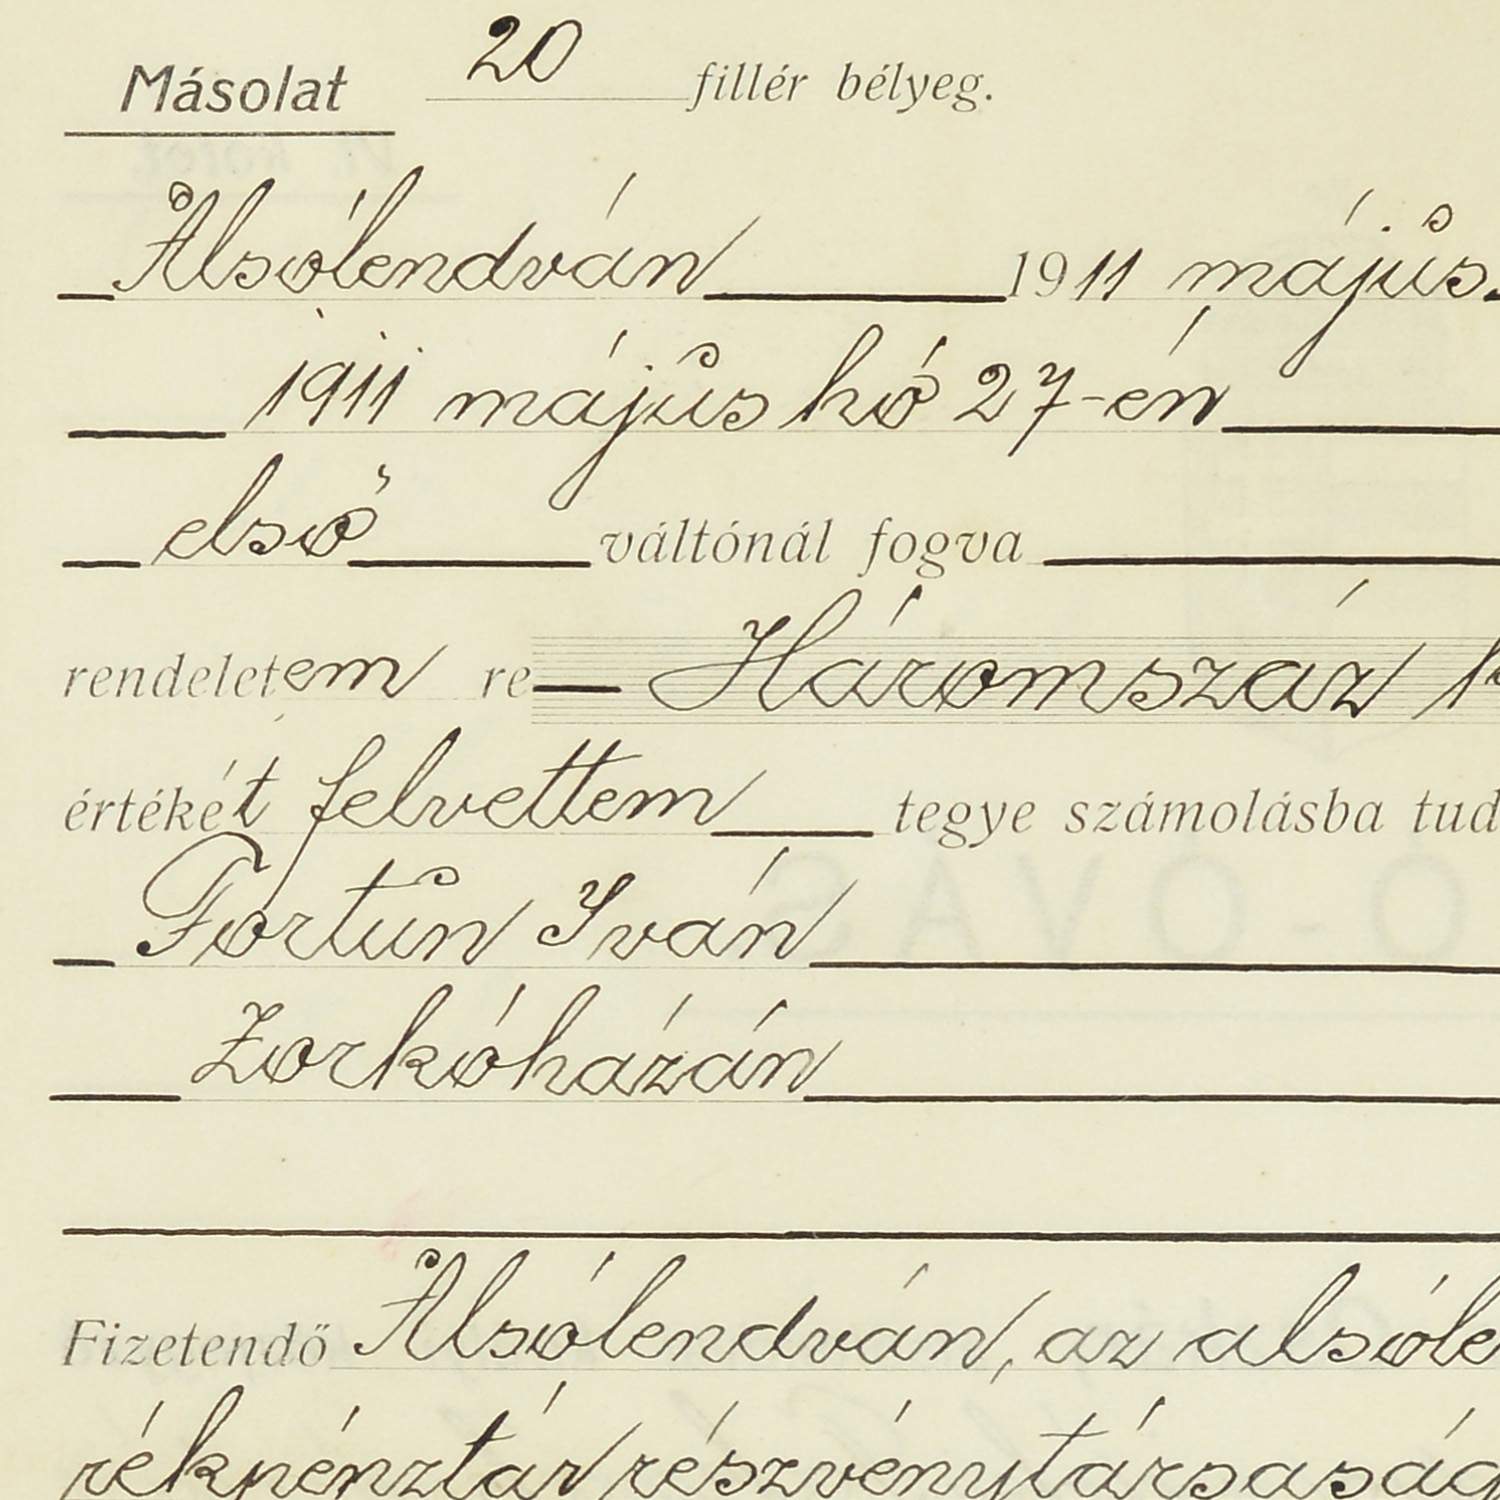 Másolat 20 fillér bélyeg.
Alsólendván 1911 május
1911 május hó 27-én
első váltónál fogva
rendeletem re Háromszáz
értékét felvettem tegye számolásba tud
Fortun Iván
Zorkóházán
Fizetendő Alsólendván, az alsóle
rékpénztár részvénytársaság